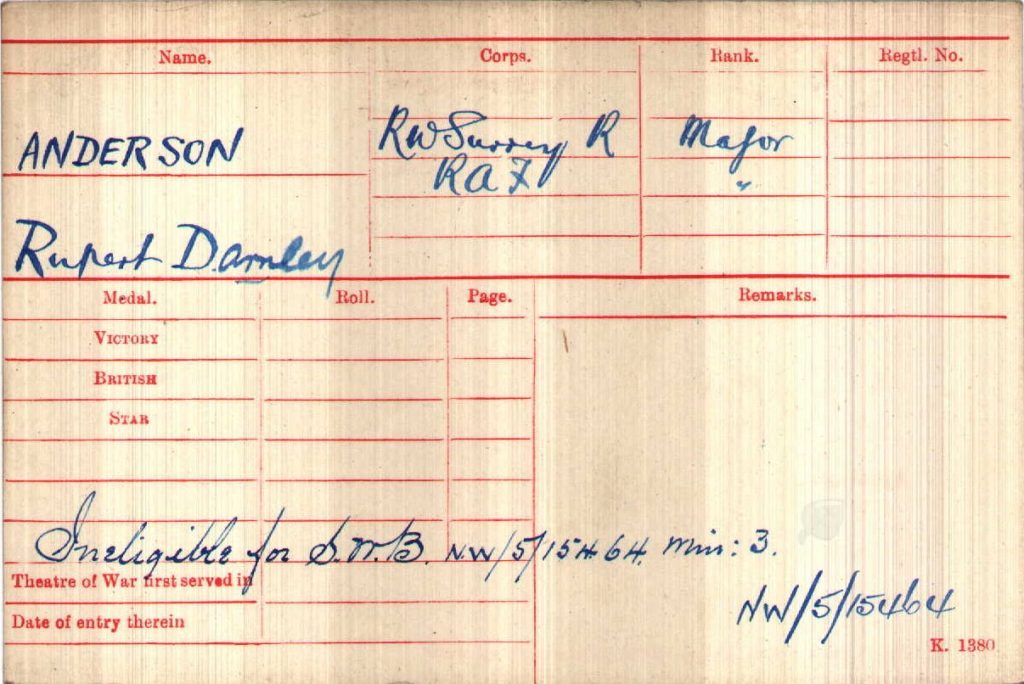 Name. Corps. Rank. Regtl. No.
ANDERSON R W Surrey R Major
R A F "
Rupert Darnley
Medal. Roll. Page. Remarks.
VICTORY
BRITISH
STAR
Ineligible for S.W.B. NW/5/15464. Min: 3.
Theatre of War first served in
NW/5/15464
Date of entry therein
K. 1380